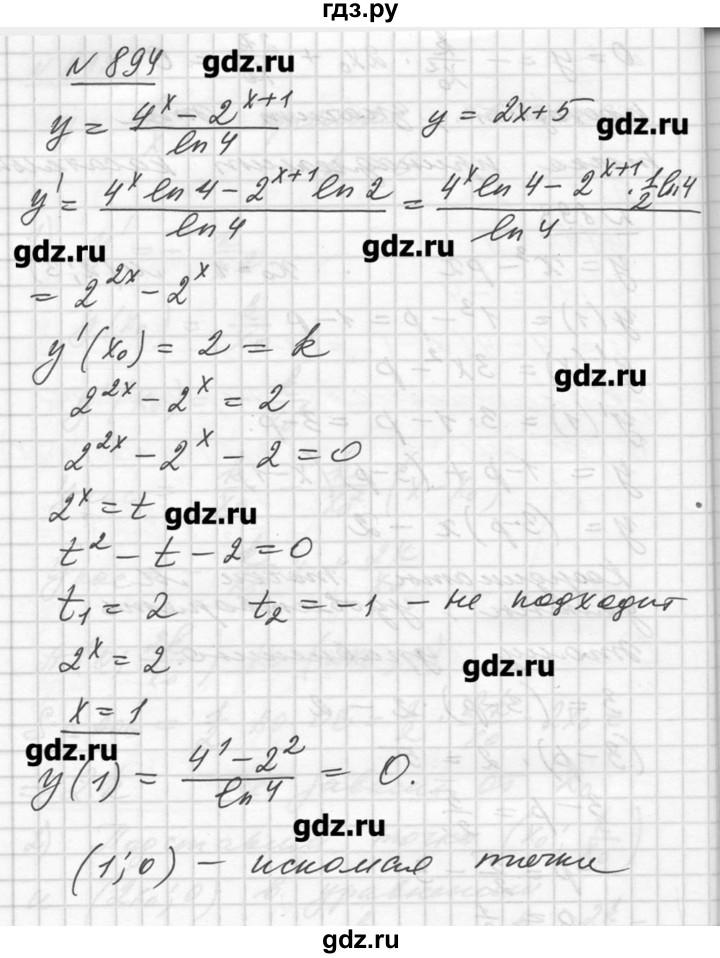 гдз.ру
№ 894 gdz.ru
y = (4^x − 2^(x+1)) / ln 4    y = 2x+5 gdz.ru
y' = (4^x ln 4 − 2^(x+1) ln 2) / ln 4 = (4^x ln 4 − 2^(x+1) · 1/2 ln 4) / ln 4
gdz.ru gdz.ru
= 2^(2x) − 2^x
y'(x₀) = 2 = k
gdz.ru
2^(2x) − 2^x = 2
2^(2x) − 2^x − 2 = 0
2^x = t gdz.ru
t² − t − 2 = 0
t₁ = 2    t₂ = −1 − не подходит
2^x = 2 gdz.ru
x = 1
gdz.ru
y(1) = (4¹ − 2²) / ln 4 = 0.
gdz.ru
(1; 0) − искомая точка
gdz.ru